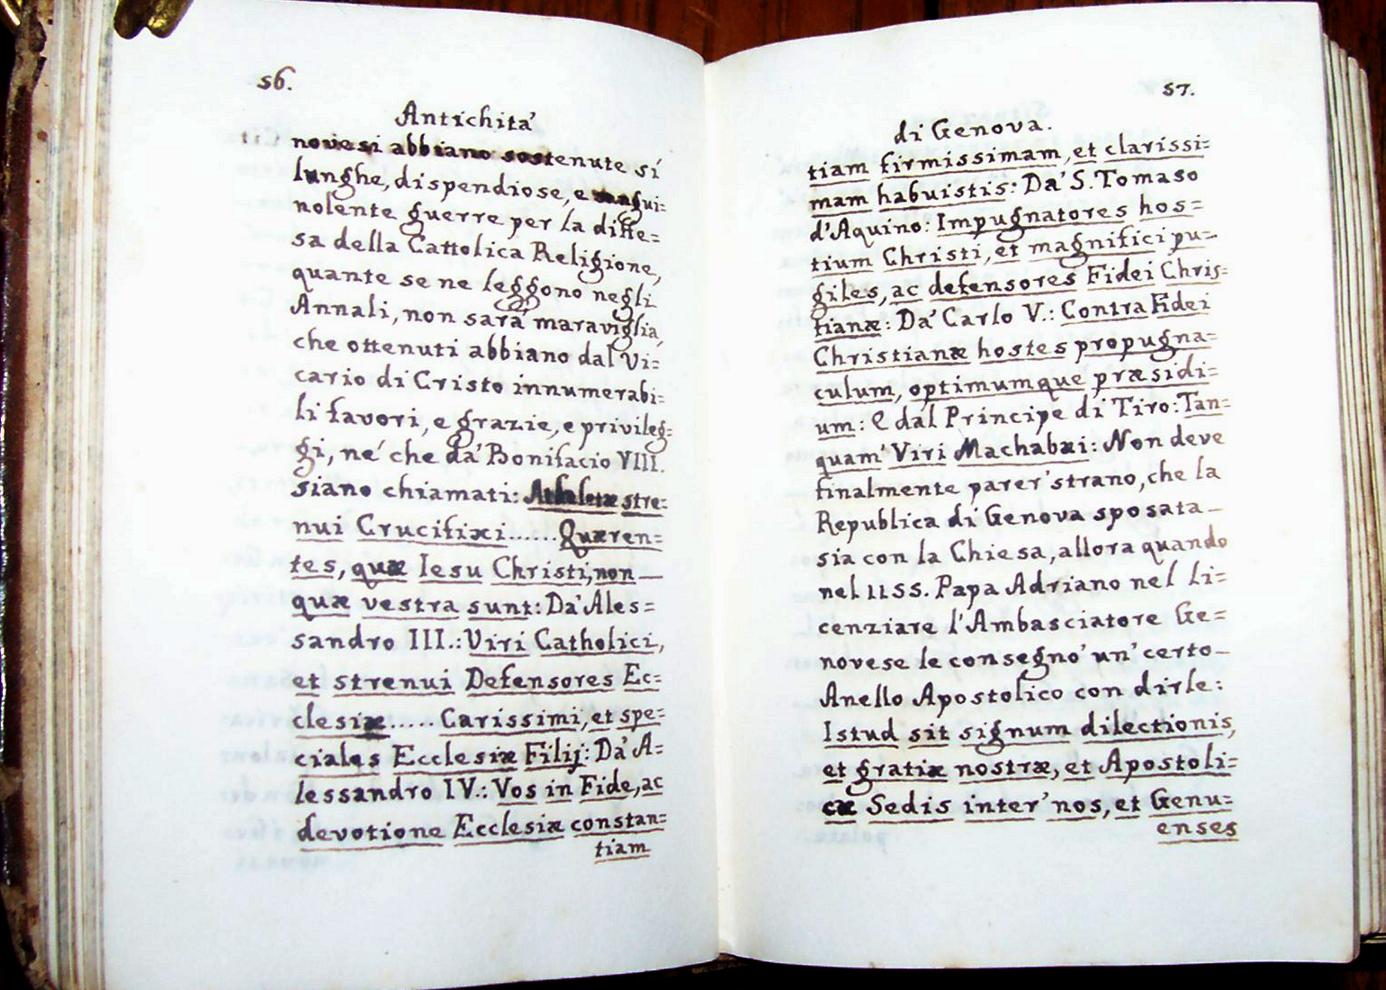 56.
Antichità
novesi abbiano sostenute sí
lunghe, dispendiose, e sangui=
nolente guerre per la diffe=
sa della Cattolica Religione,
quante se ne leggono negli
Annali, non sarà maraviglia,
che ottenuti abbiano dal Vi=
cario di Cristo innumerabi=
li favori, e grazie, e privileg=
gi, né che da' Bonifacio VIII.
siano chiamati: Athletæ stre=
nui Crucifixi...... Quæren=
tes, quæ Iesu Christi, non
quæ vestra sunt: Da' Ales=
sandro III.: Viri Catholici,
et strenui Defensores Ec=
clesiæ..... Carissimi, et spe=
ciales Ecclesiæ Filij: Da' A=
lessandro IV.: Vos in Fide, ac
devotione Ecclesiæ constan=
tiam
57.
di Genova.
tiam firmissimam, et clarissi=
mam habuistis: Da' S. Tomaso
d'Aquino: Impugnatores hos=
tium Christi, et magnifici pu=
giles, ac defensores Fidei Chris=
tianæ: Da' Carlo V.: Contra Fidei
Christianæ hostes propugna=
culum, optimumque præsidi=
um: E dal Principe di Tiro: Tan=
quam' Viri Machabæi: Non deve
finalmente parer' strano, che la
Republica di Genova sposata
sia con la Chiesa, allora quando
nel 1155. Papa Adriano nel li=
cenziare l'Ambasciatore Ge=
novese le consegno' un' certo
Anello Apostolico con dirle:
Istud sit signum dilectionis,
et gratiæ nostræ, et Apostoli=
cæ Sedis inter' nos, et Genu=
enses